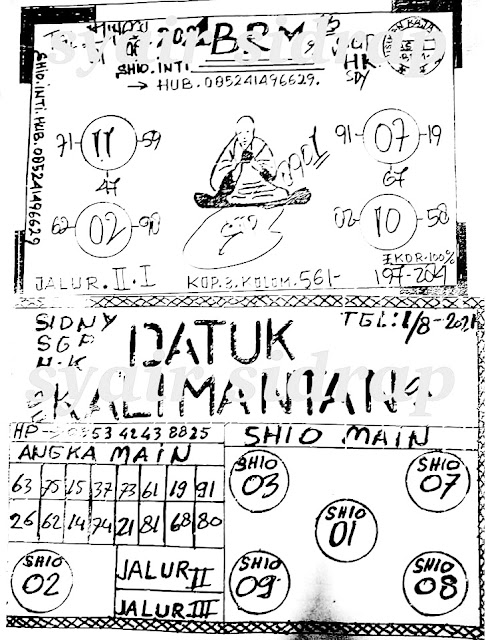 BRM
HK
SDY
SHIO.INTI
→ HUB.085241496629.
SHIO.INTI.HUB.085241496629
71 11 59
47
62 02 90
91 07 19
67
02 10 50
EKOR.100%
197-204
JALUR.II.I
KOP.3.KOLOM.561-
SIDNY
SGP
H.K
TGL:1/8-2021
DATUK
KALIMANTAN
sydir sidrap
HP
53 4243 8825
ANGKA MAIN
63 75 15 37 73 61 19 91
26 62 14 74 21 81 68 80
SHIO
02
JALUR II
JALUR III
SHIO MAIN
SHIO
03
SHIO
07
SHIO
01
SHIO
09
SHIO
08